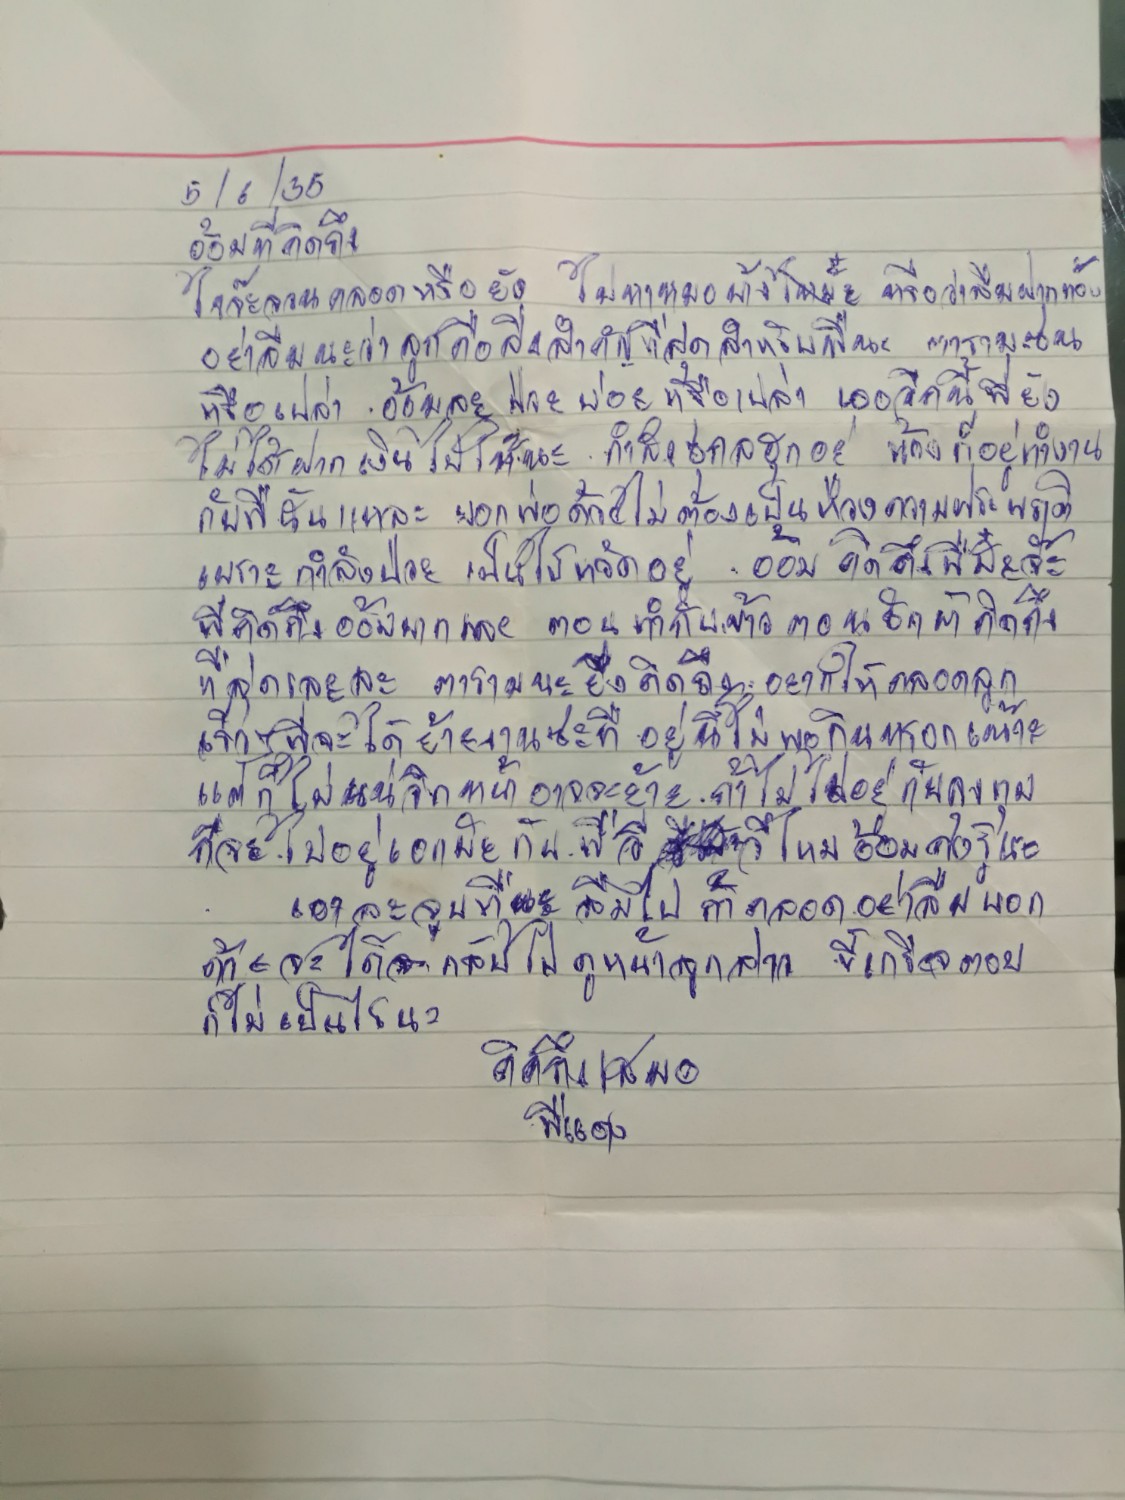 5/6/35
อ้อมที่คิดถึง
ใกล้จะคลอดหรือยัง ไปหาหมอบ้างไหม หรือว่าลืมฝากท้อง
อย่าลืมนะว่าลูกคือสิ่งสำคัญที่สุดสำหรับพี่นะ
หรือเปล่า อ้อมละป่วยบ่อยหรือเปล่า เออวีคนี้พี่ยัง
ไม่ได้ฝากเงินไปให้นะ กำลังอยู่ น้องก็อยู่ทำงาน
กับพี่นั่นแหละ บอกพ่อด้วยไม่ต้องเป็นห่วงความประพฤติ
เพราะกำลังป่วย เป็นไข้หวัดอยู่ อ้อม คิดถึงพี่มั้ยจ๊ะ
พี่คิดถึงอ้อมมากและ ตอนทำกับข้าวตอนซักผ้าคิดถึง
ที่สุดเลยละ นะยิ่งคิดถึง อยากให้คลอดลูก
เร็วๆพี่จะได้ย้ายงานซะที อยู่นี่ไม่พอกินหรอก
แต่ก็ไม่แน่วีกหน้าอาจจะย้าย ถ้าไม่ไปอยู่กับลุง
ก็จะไปอยู่ กับพี่วี วีไหนอ้อมคงรู้นะ
เอาละจบที่นะ ลืมไป ถ้าคลอดอย่าลืมบอก
ด้วย จะได้กลับไปดูหน้าลูกสาว ขี้เกียจตอบ
ก็ไม่เป็นไรนะ
คิดถึงเสมอ
พี่แดง